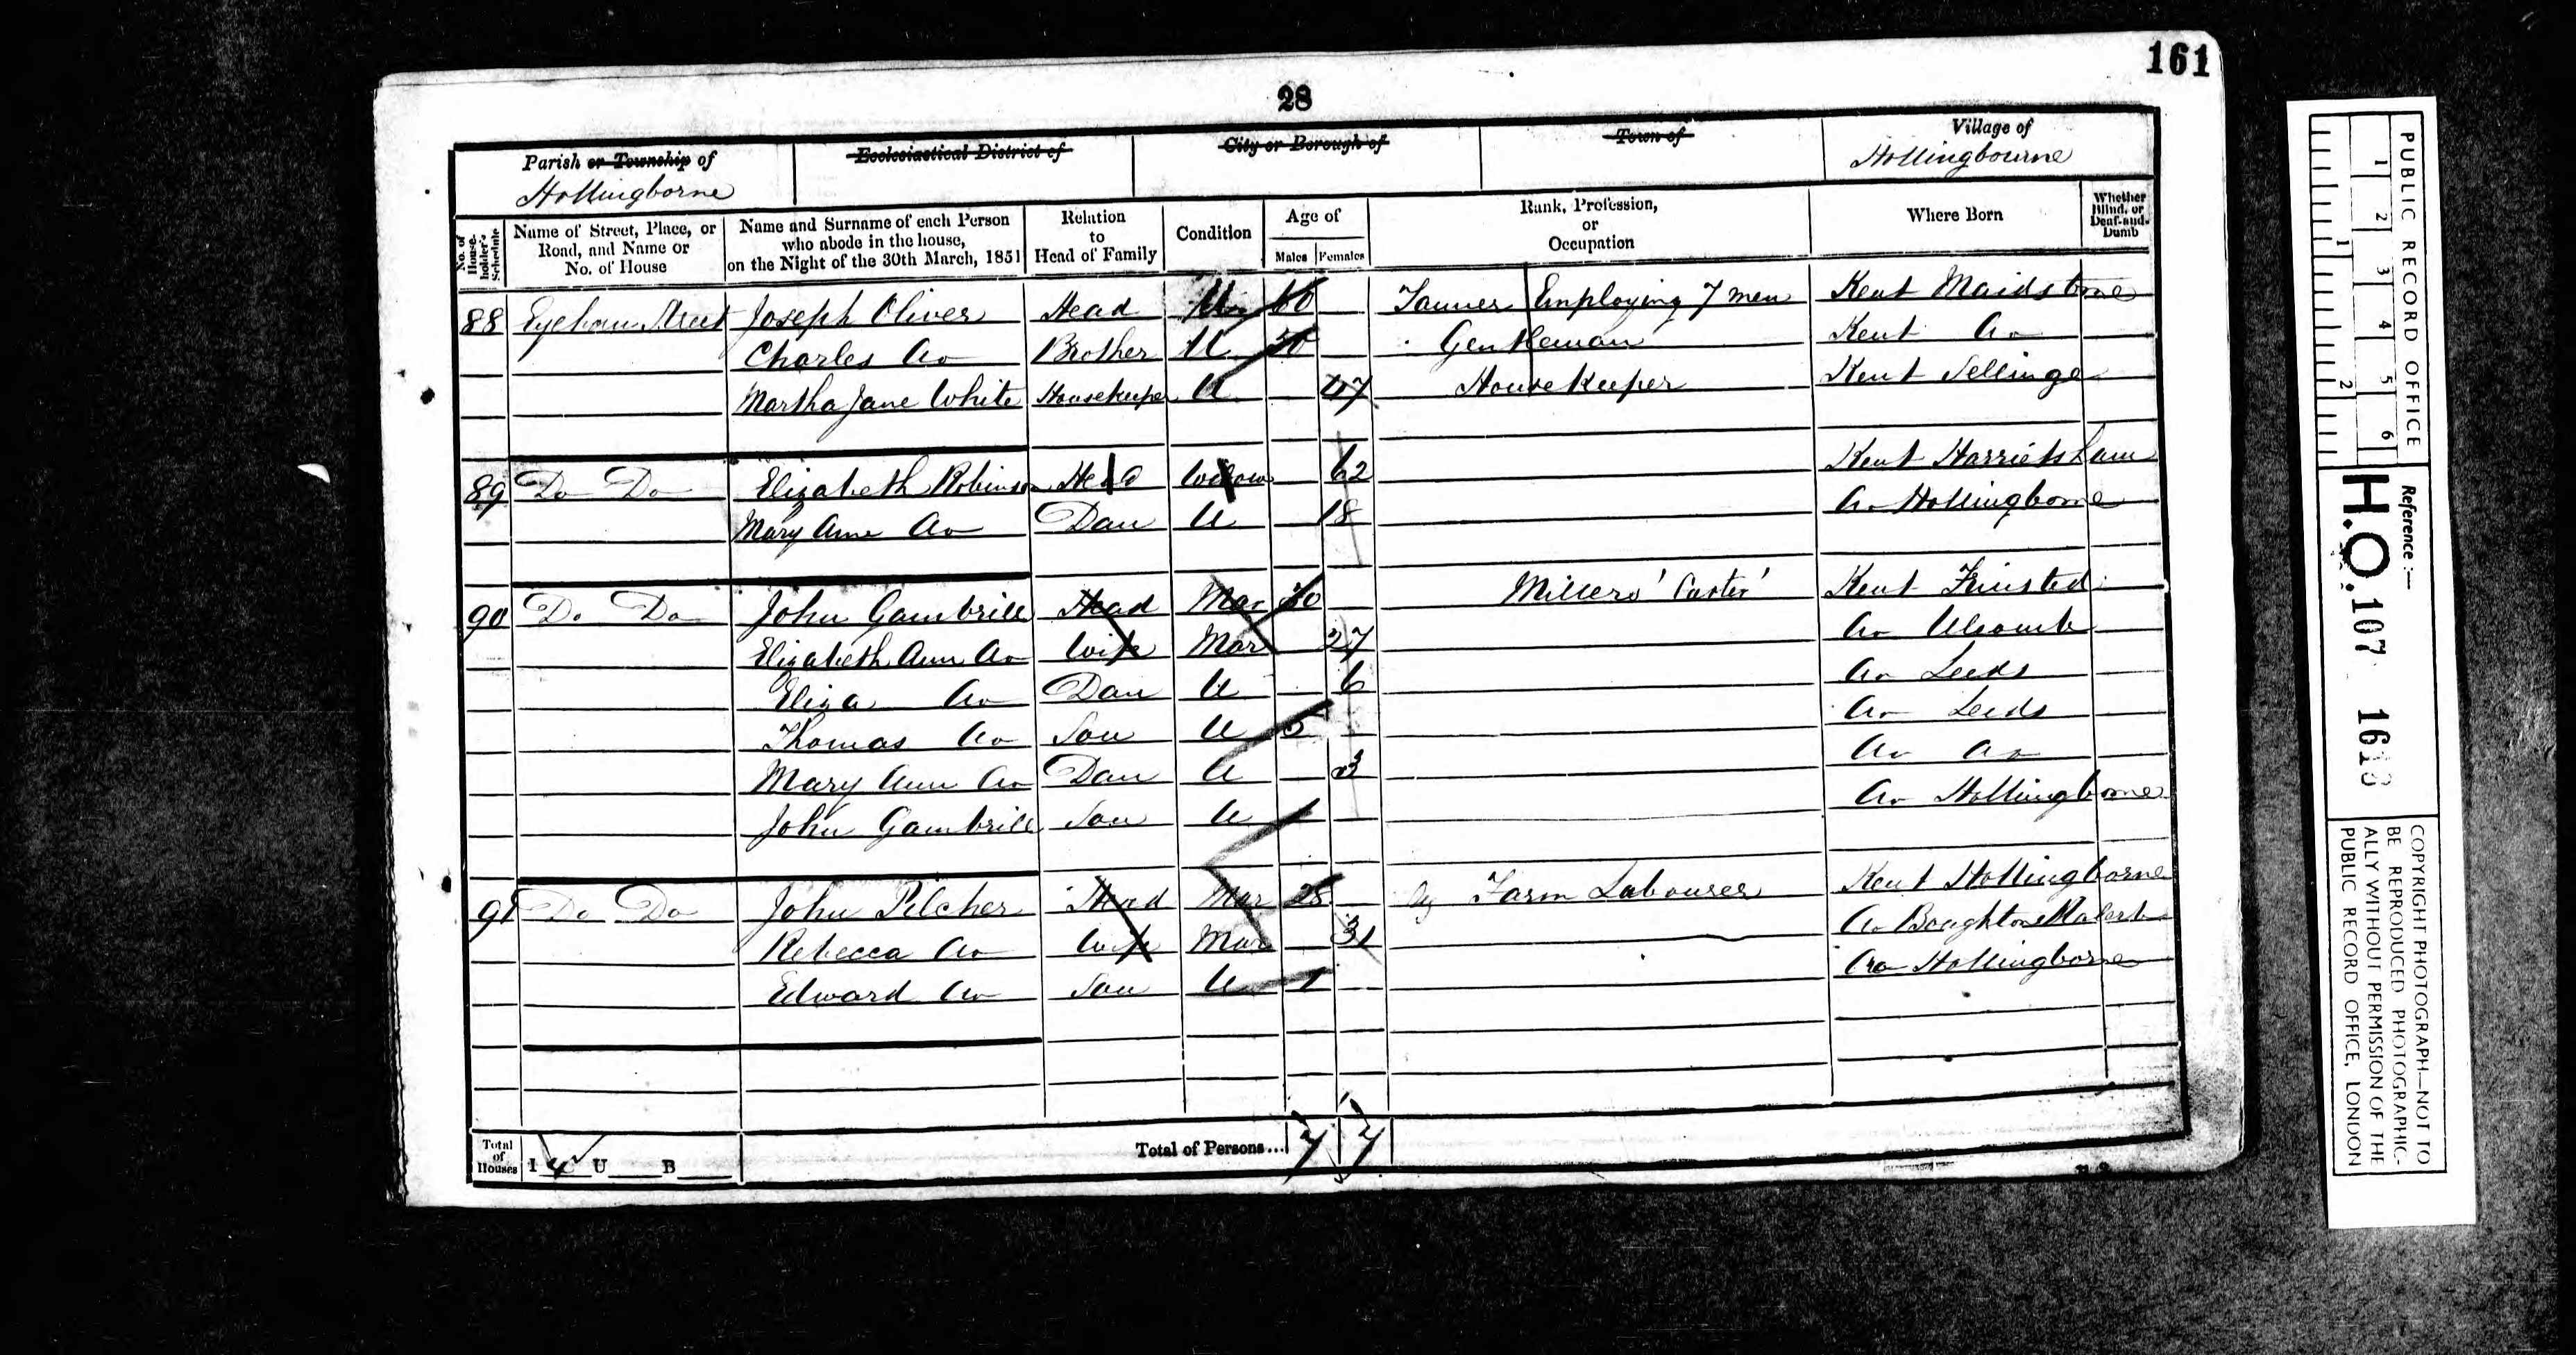 161
28
Parish or Township of
Hollingborne
Ecclesiastical District of
City or Borough of
Town of
Village of
Hollingbourne
No. of House-holder's Schedule
Name of Street, Place, or Road, and Name or No. of House
Name and Surname of each Person who abode in the house, on the Night of the 30th March, 1851
Relation to Head of Family
Condition
Age of
Males Females
Rank, Profession, or Occupation
Where Born
Whether Blind, or Deaf-and-Dumb
88 Eyehorn Street Joseph Oliver Head Un 60 Tanner Employing 7 men Kent Maidstone
Charles Do Brother U 50 Gentleman Kent Do
Martha Jane White Housekeeper U 47 Housekeeper Kent Sellinge
89 Do Do Elizabeth Robinson Head Widow 62 Kent Harrietsham
Mary Ann Do Dau U 18 Do Hollingborne
90 Do Do John Gambrill Head Mar 30 Millers' Carter Kent Frinsted
Elizabeth Ann Do Wife Mar 27 Do Ulcomb
Eliza Do Dau U 6 Do Leeds
Thomas Do Son U 5 Do Leeds
Mary Ann Do Dau U 3 Do Do
John Gambrill Son U 1 Do Hollingborne
91 Do Do John Pilcher Head Mar 28 Ag Farm Labourer Kent Hollingborne
Rebecca Do Wife Mar 31 Do Boughton Malherb
Edward Do Son U 1 Do Hollingborne
Total of Houses I 4 U B
Total of Persons... 7 7
PUBLIC RECORD OFFICE
1 2 3 4 5 6
1 2
Reference :—
H.O. 107 1618
COPYRIGHT PHOTOGRAPH—NOT TO
BE REPRODUCED PHOTOGRAPHIC-
ALLY WITHOUT PERMISSION OF THE
PUBLIC RECORD OFFICE, LONDON